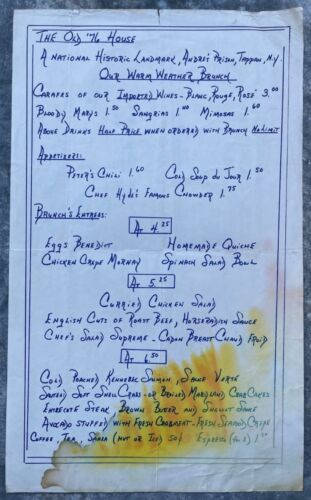 The Old '76 House
A National Historic Landmark, Andre's Prison, Tappan, N.Y.
Our Warm Weather Brunch
Carafes of our Imported Wines - Blanc, Rouge, Rosé 3.00
Bloody Marys 1.50 Sangrias 1.40 Mimosas 1.60
Above Drinks Half Price when ordered with Brunch No Limit
Appetizers:
Peter's Chili 1.60 Cold Soup du Jour 1.50
Chef Hyde's Famous Chowder 1.75
Brunch's Entrees:
At 4.25
Eggs Benedict Homemade Quiche
Chicken Crepe Mornay Spinach Salad Bowl
At 5.25
Curried Chicken Salad
English Cuts of Roast Beef, Horseradish Sauce
Chef's Salad Supreme - Capon Breast Chaud Froid
At 6.50
Cold Poached Kennebec Salmon, Sauce Verte
Sauteed Soft Shell Crabs - or Broiled Maryland Crab Cakes
Entrecote Steak, Brown Butter and Shallot Sauce
Avocado Stuffed with Fresh Crabmeat - Fresh Seafood Crepe
Coffee, Tea, Sanka (hot or Ice) 50¢ Espresso (for 2)